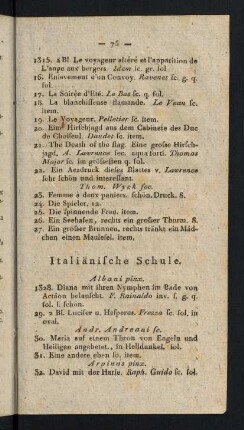 — 76 —
1315. 2 Bl Le voyageur altéré et l'apparition de
L'ange aux bergers Idem sc. gr. fol.
16. Enlevement d'un Convoy. Ravenet sc. q.
fol.
17. La Soirée d'Eté. Le Bas sc. q. fol.
18. La blanchisseuse flamande. Le Veau sc.
item.
19. Le Voyageur. Pelletier sc. item.
20. Eine Hirschjagd aus dem Cabinete des Duc
de Choiseul. Daudet sc. item.
21. The Death of the stag. Eine grosse Hirsch-
jagd, A. Lawrence inc. aqua forti. Thomas
Major sc. im größesten q. fol.
22. Ein Aezdruck dieses Blattes v. Lawrence
sehr schön und interessant.
Thom. Wyck fec.
23. Femme à deux paniers. schön. Druck. 8.
24. Die Spieler. 12.
25. Die spinnende Frau. item.
26. Ein Seehafen, rechts ein großer Thurm. 8.
27. Ein großer Brunnen, rechts tränkt ein Mäd-
chen einen Maulesel. item.
Italiänische Schule.
Albani pinx.
1328. Diana mit ihren Nymphen im Bade von
Actäon belauscht. F. Rainaldo inv. f. g. q.
fol. f. schön.
29. 2 Bl. Lucifer u. Hesperus. Frezza sc. fol. in
oval.
Andr. Andreani sc.
30. Maria auf einem Thron von Engeln und
Heiligen angebetet, in Helldunkel. fol.
31. Eine andere eben sc. item.
Arpinus pinx.
32. David mit der Harfe. Raph. Guido sc. fol.